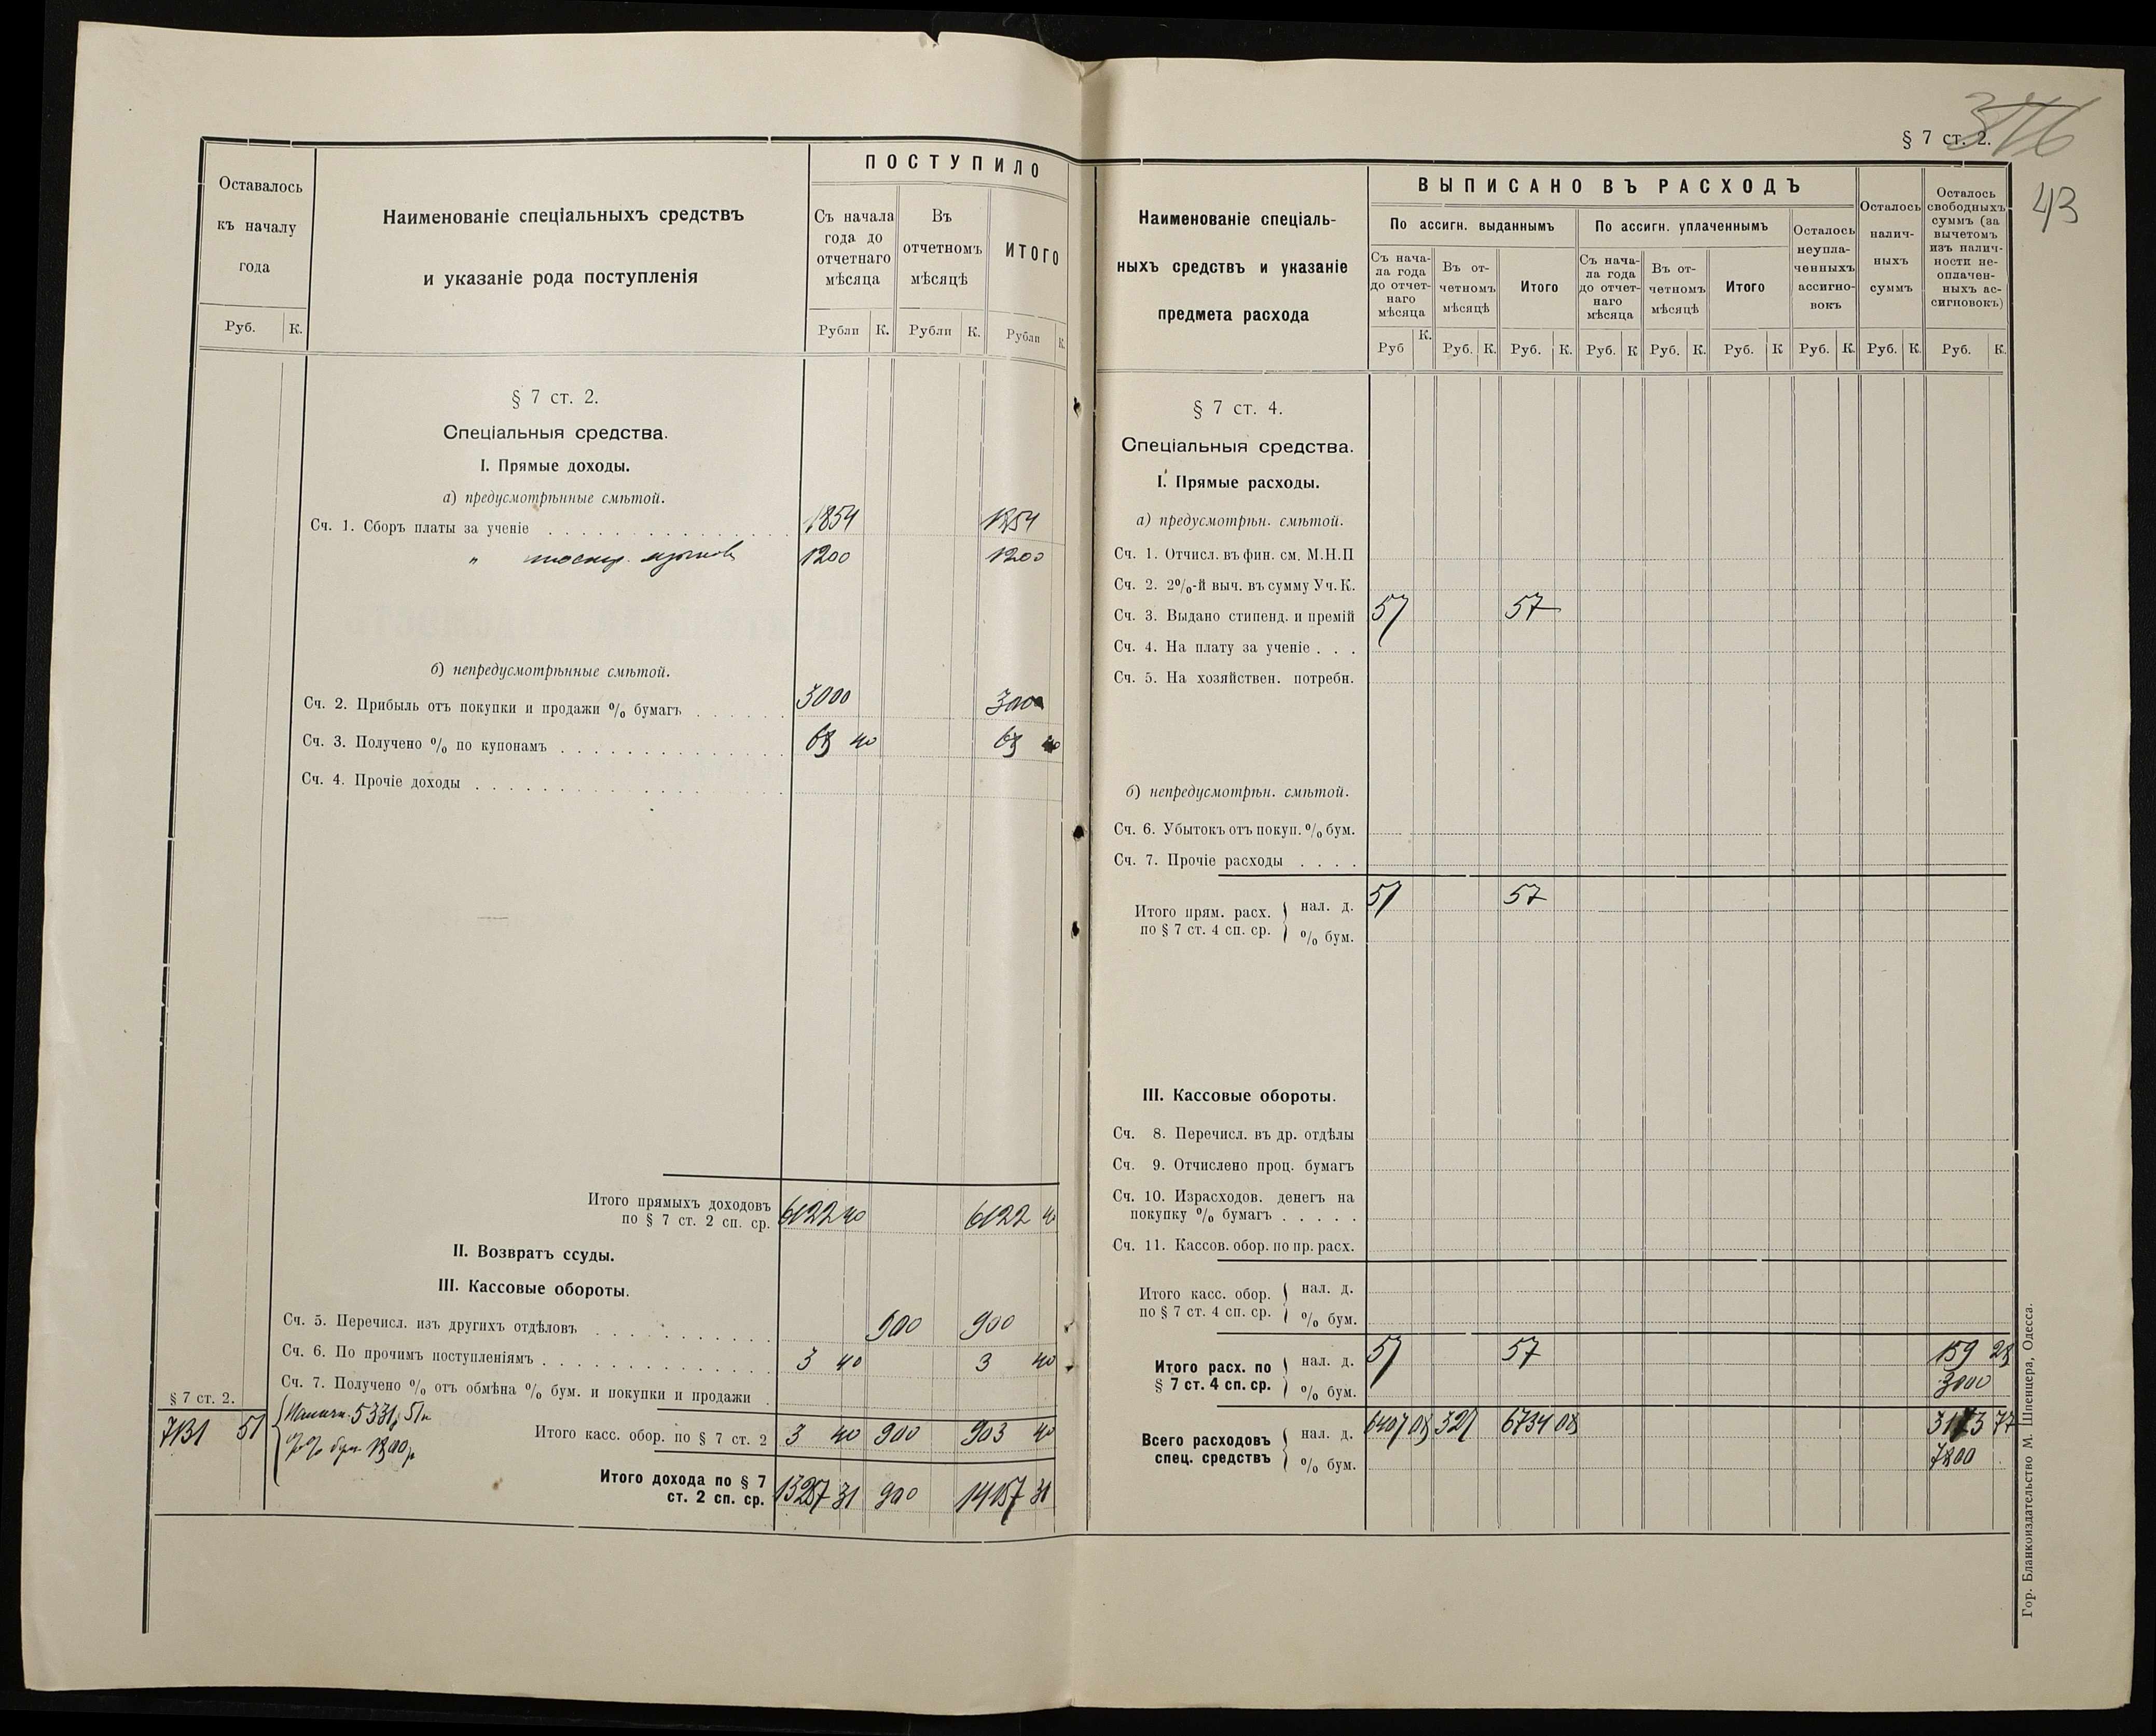 § 7 ст. 2.
43
Оставалось
къ началу
года
Руб. К.
Наименованіе спеціальныхъ средствъ
и указаніе рода поступленія
ПОСТУПИЛО
Съ начала
года до
отчетнаго
мѣсяца
Рубли К.
Въ
отчетномъ
мѣсяцѣ
Рубли К.
ИТОГО
Рубли К.
§ 7 ст. 2.
Спеціальныя средства.
I. Прямые доходы.
а) предусмотрѣнные смѣтой.
Сч. 1. Сборъ платы за ученіе 1854 1854
" 1200 1200
б) непредусмотрѣнные смѣтой.
Сч. 2. Прибыль отъ покупки и продажи % бумагъ 3000 3000
Сч. 3. Получено % по купонамъ 68 40 68 40
Сч. 4. Прочіе доходы
Итого прямыхъ доходовъ
по § 7 ст. 2 сп. ср. 6122 40 6122 40
II. Возвратъ ссуды.
III. Кассовые обороты.
Сч. 5. Перечисл. изъ другихъ отдѣловъ 900 900
Сч. 6. По прочимъ поступленіямъ 3 40 3 40
Сч. 7. Получено % отъ обмѣна % бум. и покупки и продажи
§ 7 ст. 2.
7131 51
Налич. 5331, 51к
%% бум. 1800р
Итого касс. обор. по § 7 ст. 2 3 40 900 903 40
Итого дохода по § 7
ст. 2 сп. ср. 13257 31 900 14157 31
Наименованіе спеціаль-
ныхъ средствъ и указаніе
предмета расхода
ВЫПИСАНО ВЪ РАСХОДЪ
По ассигн. выданнымъ
Съ нача-
ла года
до отчет-
наго
мѣсяца
Руб К.
Въ от-
четномъ
мѣсяцѣ
Руб. К.
Итого
Руб. К.
По ассигн. уплаченнымъ
Съ нача-
ла года
до отчет-
наго
мѣсяца
Руб. К
Въ от-
четномъ
мѣсяцѣ
Руб. К.
Итого
Руб. К
Осталось
неупла-
ченныхъ
ассигно-
вокъ
Руб. К.
Осталось
налич-
ныхъ
суммъ
Руб. К.
Осталось
свободныхъ
суммъ (за
вычетомъ
изъ налич-
ности не-
оплачен-
ныхъ ас-
сигновокъ)
Руб. К.
§ 7 ст. 4.
Спеціальныя средства.
I. Прямые расходы.
а) предусмотрѣн. смѣтой.
Сч. 1. Отчисл. въ фин. см. М.Н.П
Сч. 2. 2%-й выч. въ сумму Уч. К.
Сч. 3. Выдано стипенд. и премій 57 57
Сч. 4. На плату за ученіе
Сч. 5. На хозяйствен. потребн.
б) непредусмотрѣн. смѣтой.
Сч. 6. Убытокъ отъ покуп. % бум.
Сч. 7. Прочіе расходы
Итого прям. расх. нал. д. 57 57
по § 7 ст. 4 сп. ср. % бум.
III. Кассовые обороты.
Сч. 8. Перечисл. въ др. отдѣлы
Сч. 9. Отчислено проц. бумагъ
Сч. 10. Израсходов. денегъ на
покупку % бумагъ
Сч. 11. Кассов. обор. по пр. расх.
Итого касс. обор. нал. д.
по § 7 ст. 4 сп. ср. % бум.
Итого расх. по нал. д. 57 57 159 28
§ 7 ст. 4 сп. ср. % бум. 3000
Всего расходовъ нал. д. 6407 08 327 6734 08 77
спец. средствъ % бум. 7800
Гор. Бланкоиздательство М. Шпенцера, Одесса.